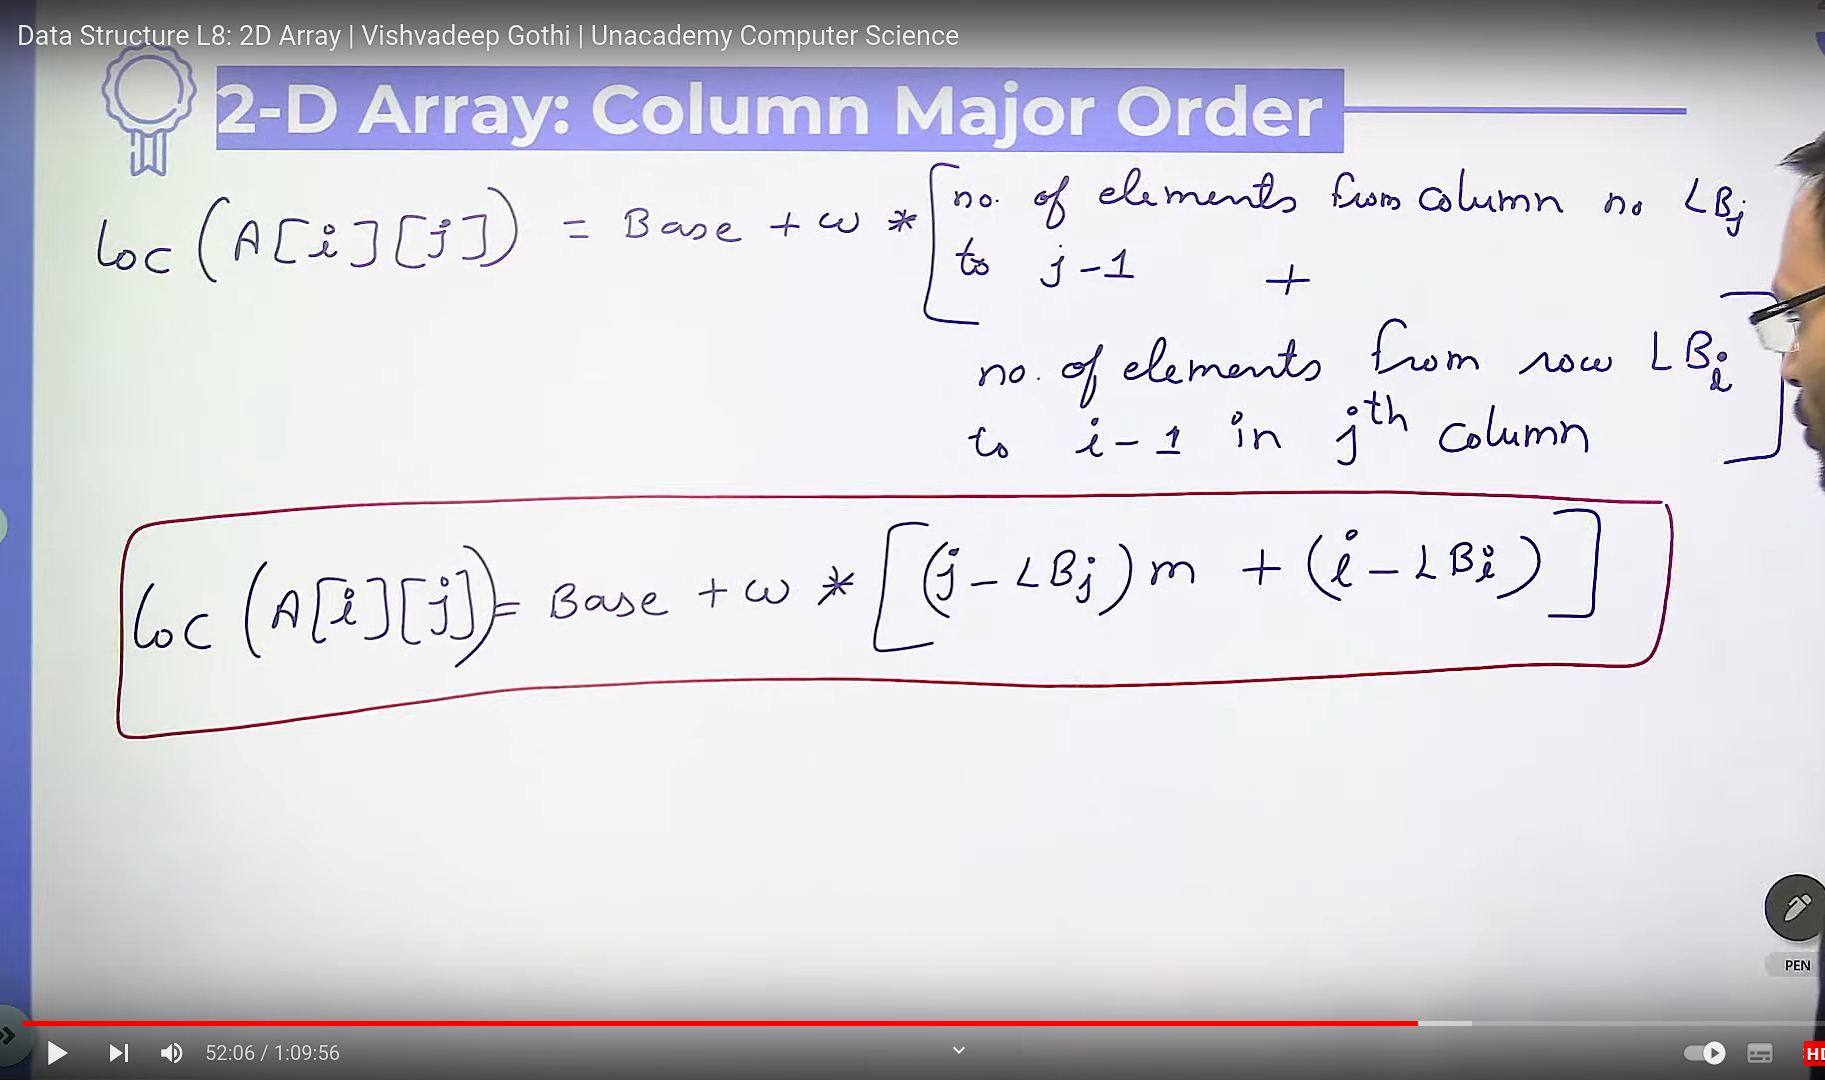 Data Structure L8: 2D Array | Vishvadeep Gothi | Unacademy Computer Science
2-D Array: Column Major Order
Loc (A[i][j]) = Base + ω * [no. of elements from column no LBj
to j-1 +
no. of elements from row LBi
to i-1 in jth column]
Loc (A[i][j]) = Base + ω * [(j-LBj)m + (i-LBi)]
PEN
52:06 / 1:09:56
HD